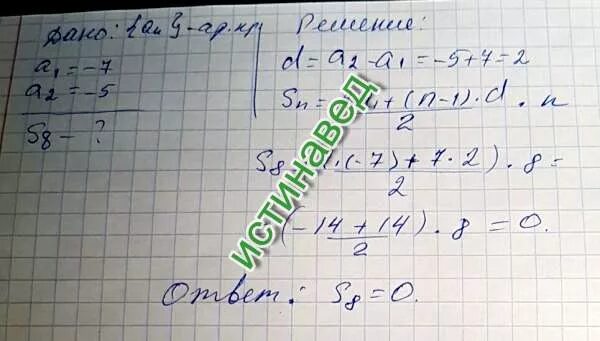 Дано: {an} - ар.пр.
a₁ = -7
a₂ = -5
S₈ - ?
Решение:
d = a₂ - a₁ = -5 + 7 = 2
Sn = + (n-1)·d / 2 · n
S₈ ·(-7) + 7·2) / 2 · 8 =
(-14 + 14) / 2 · 8 = 0.
Ответ: S₈ = 0.
истинавед